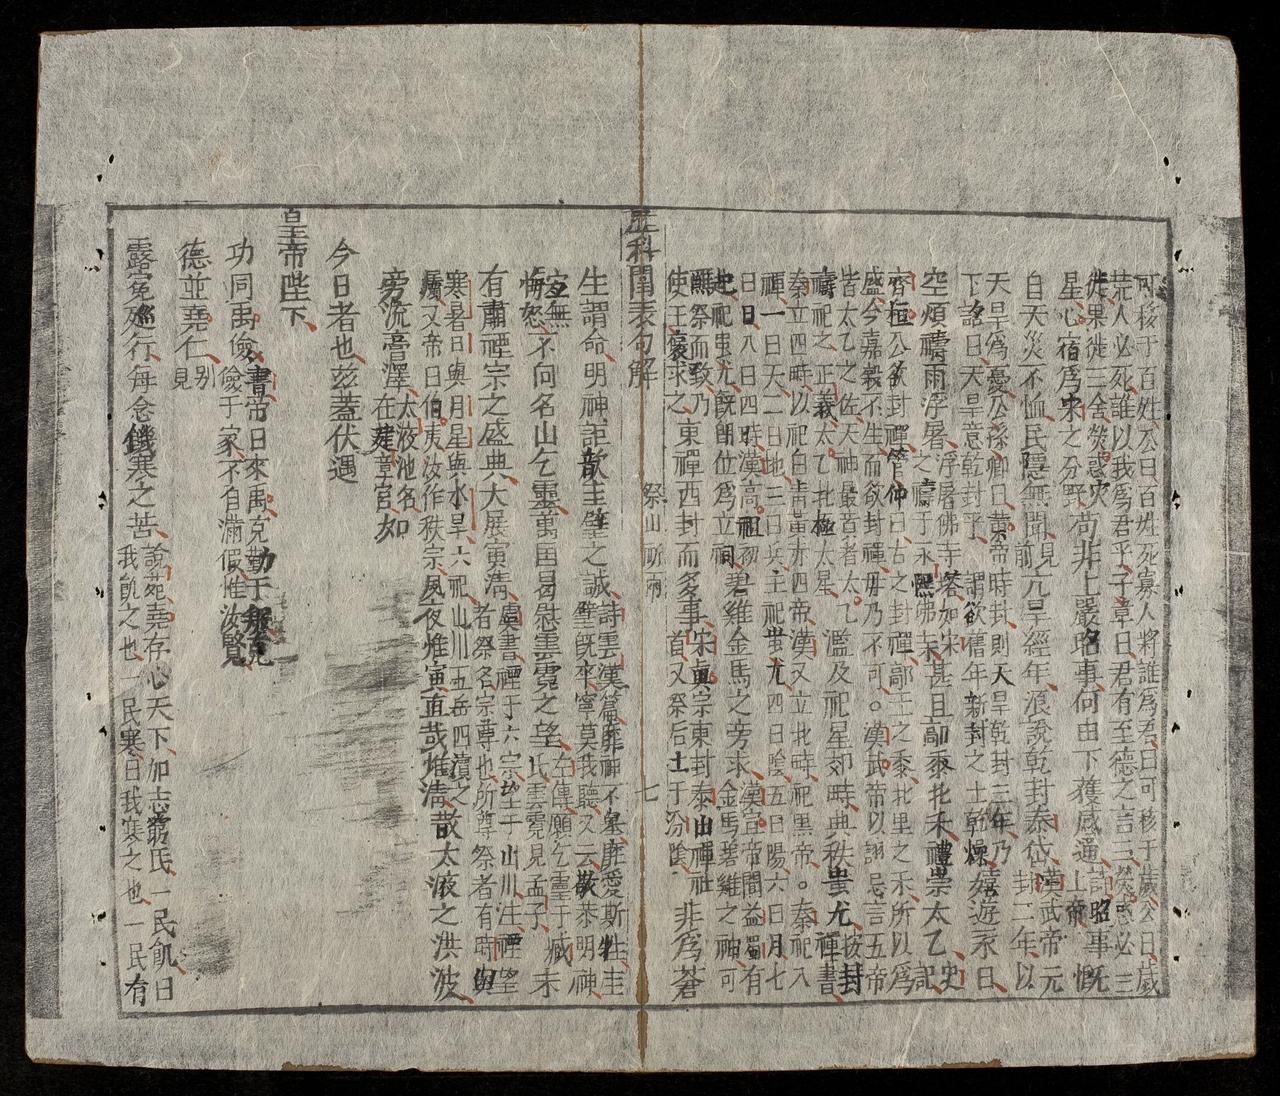 可核于百姓公曰百姓死寡人將誰爲君曰可核于歲公曰歲
荒人必死誰以我爲君乎子韋曰君有至德之言三熒惑必三
徙果徙三舍熒惑火
星心宿爲宋之分野
苟非上嚴昭事何由下獲感通
詩昭事
上帝
慨
自天災不恤民隱無聞
見
前
亢旱經年浪說乾封泰岱
漢武帝元
封二年以
天旱爲憂公孫卿曰黃帝時封則天旱乾封三年乃
下詔曰天旱意乾封乎
謂欲舊年新封之土乾燥
嬉遊永日
空煩禱雨浮屠
浮屠佛寺名如宋
之禱于永熙佛寺
甚且鄗黍北禾禮崇太乙
史
記
齊桓公欲封禪管仲曰古之封禪鄗上之黍北里之禾所以爲
盛今嘉穀不生而欲封禪毋乃不可。漢武帝以詡忌言五帝
皆太乙之佐天神最首者太乙
禱祀之正義太乙北極太星
濫及祀星郊時典秩蚩尤
封
禪書
秦立四時以祀白靑黃赤四帝漢又立北時祀黑帝。秦祀八
禪一曰天二曰地三曰兵主祀蚩尤四曰陰五曰陽六曰月七
曰日八曰四時漢高祖初
也祀蚩尤旣朗位爲立祠
碧雞金馬之旁求
漢宣帝聞益蜀有
金馬碧雞之神可
醮祭而致乃
使王褒求之
東禪西封而多事
宋眞宗東封泰山禪社
首又祭后土于汾陰
非爲蒼
歷科閣表句解
祭山祈雨
七
生謂命明神詎歆圭璧之誠
詩雲漢篇靡神不擧靡愛斯牲圭
璧旣卒寧莫我聽又云敬恭明神
宜無
悔怒
不向名山乞靈萬國曷慰雲霓之望
左傳願乞靈于臧
氏雲霓見孟子
未
有肅禋宗之盛典大展寅淸
虞書禋于六宗望于山川注禋望
者祭名宗尊也所尊祭者有時與
寒暑日與月星與水旱六祀山川五岳四瀆之
屬又帝曰伯夷汝作秩宗夙夜惟寅直哉惟淸
散太液之洪波
旁流膏澤
太液池名
在建章宮
如
今日者也玆蓋伏遇
皇帝陛下
功同禹儉
書帝曰來禹克勤于邦克
儉于家不自滿假惟汝賢
德並堯仁
別
見
露冕廵行每念饑寒之苦
說苑堯存心天下加志窮民一民飢曰
我飢之也一民寒曰我寒之也一民有